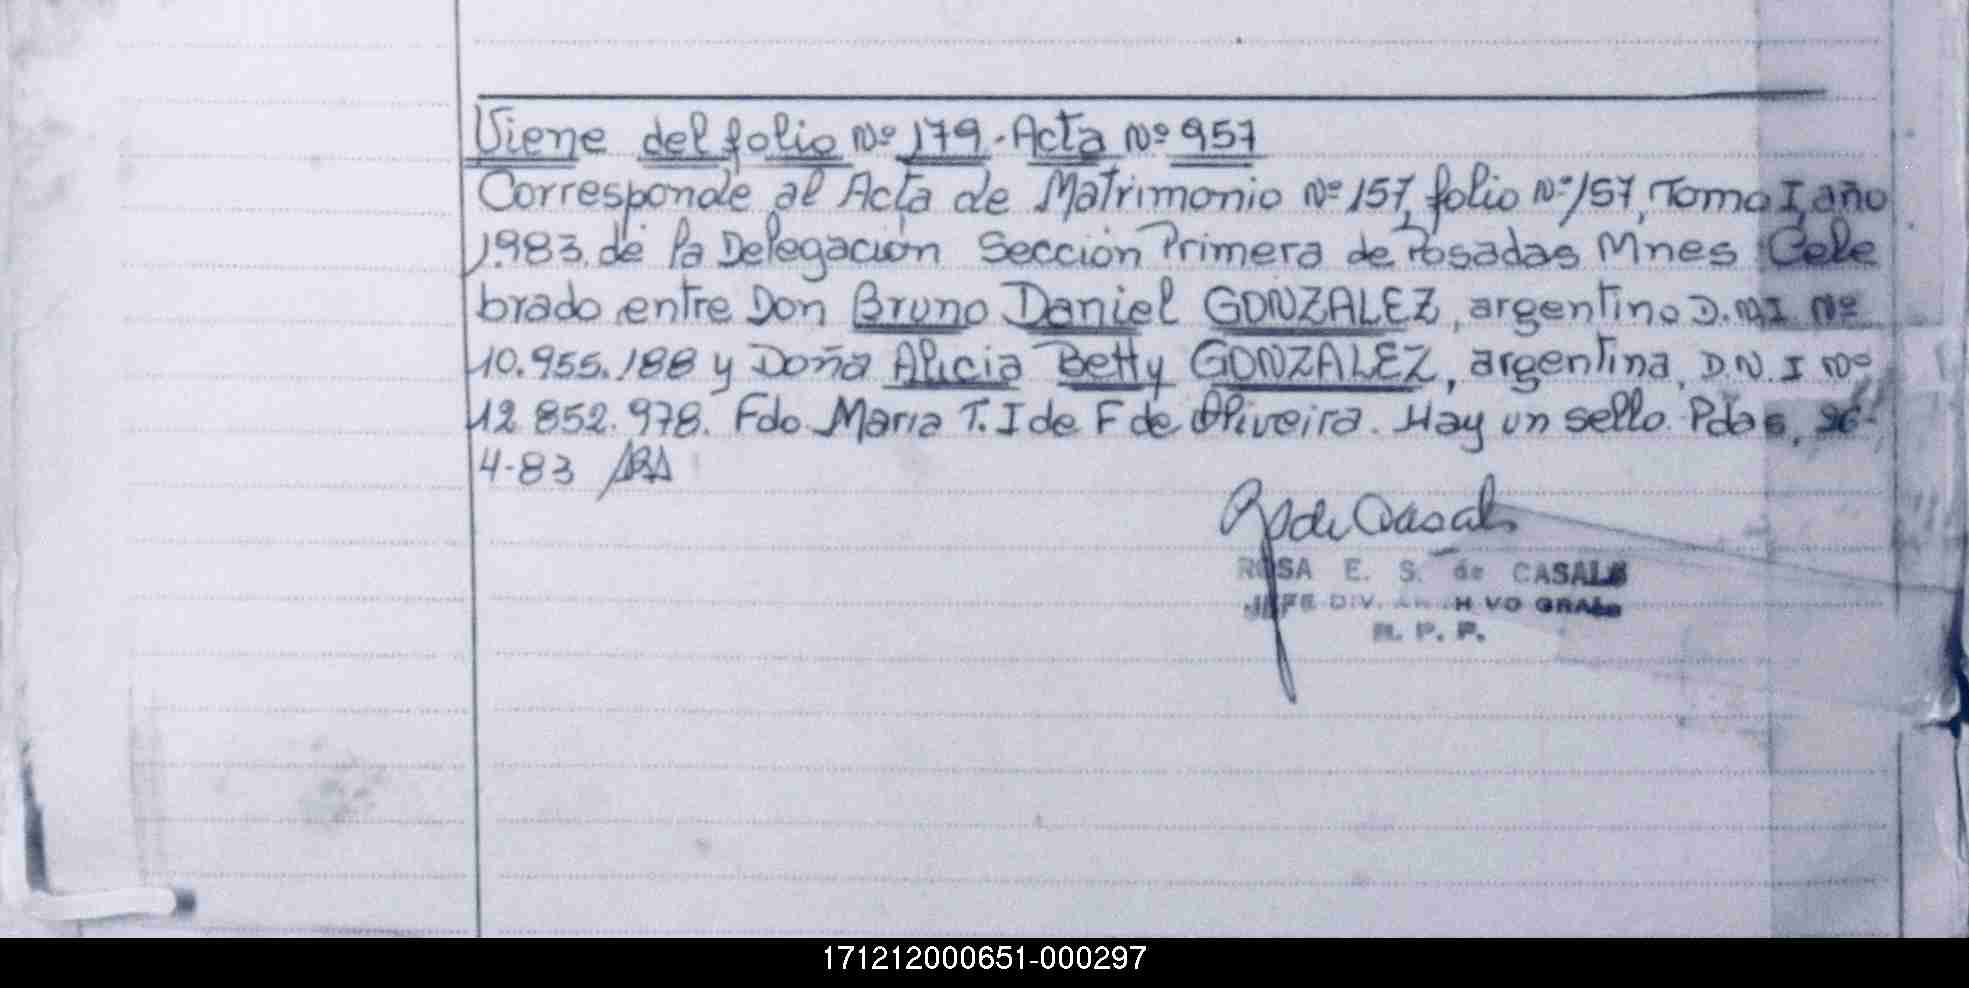 Viene del folio Nº 179. Acta Nº 957
Corresponde al Acta de Matrimonio Nº 157, folio Nº 157, Tomo I, año
1.983. de la Delegación Sección Primera de Posadas Mnes Cele
brado entre Don Bruno Daniel GONZALEZ, argentino D.N.I. Nº
10.955.188 y Doña Alicia Betty GONZALEZ, argentina, D.N.I Nº
12.852.978. Fdo. Maria T. I de F de Oliveira. Hay un sello. Pdas, 26-
4-83
R de Casals
ROSA E. S. de CASALS
JEFE DIV. ARCHIVO GRAL.
R. P. P.
171212000651-000297